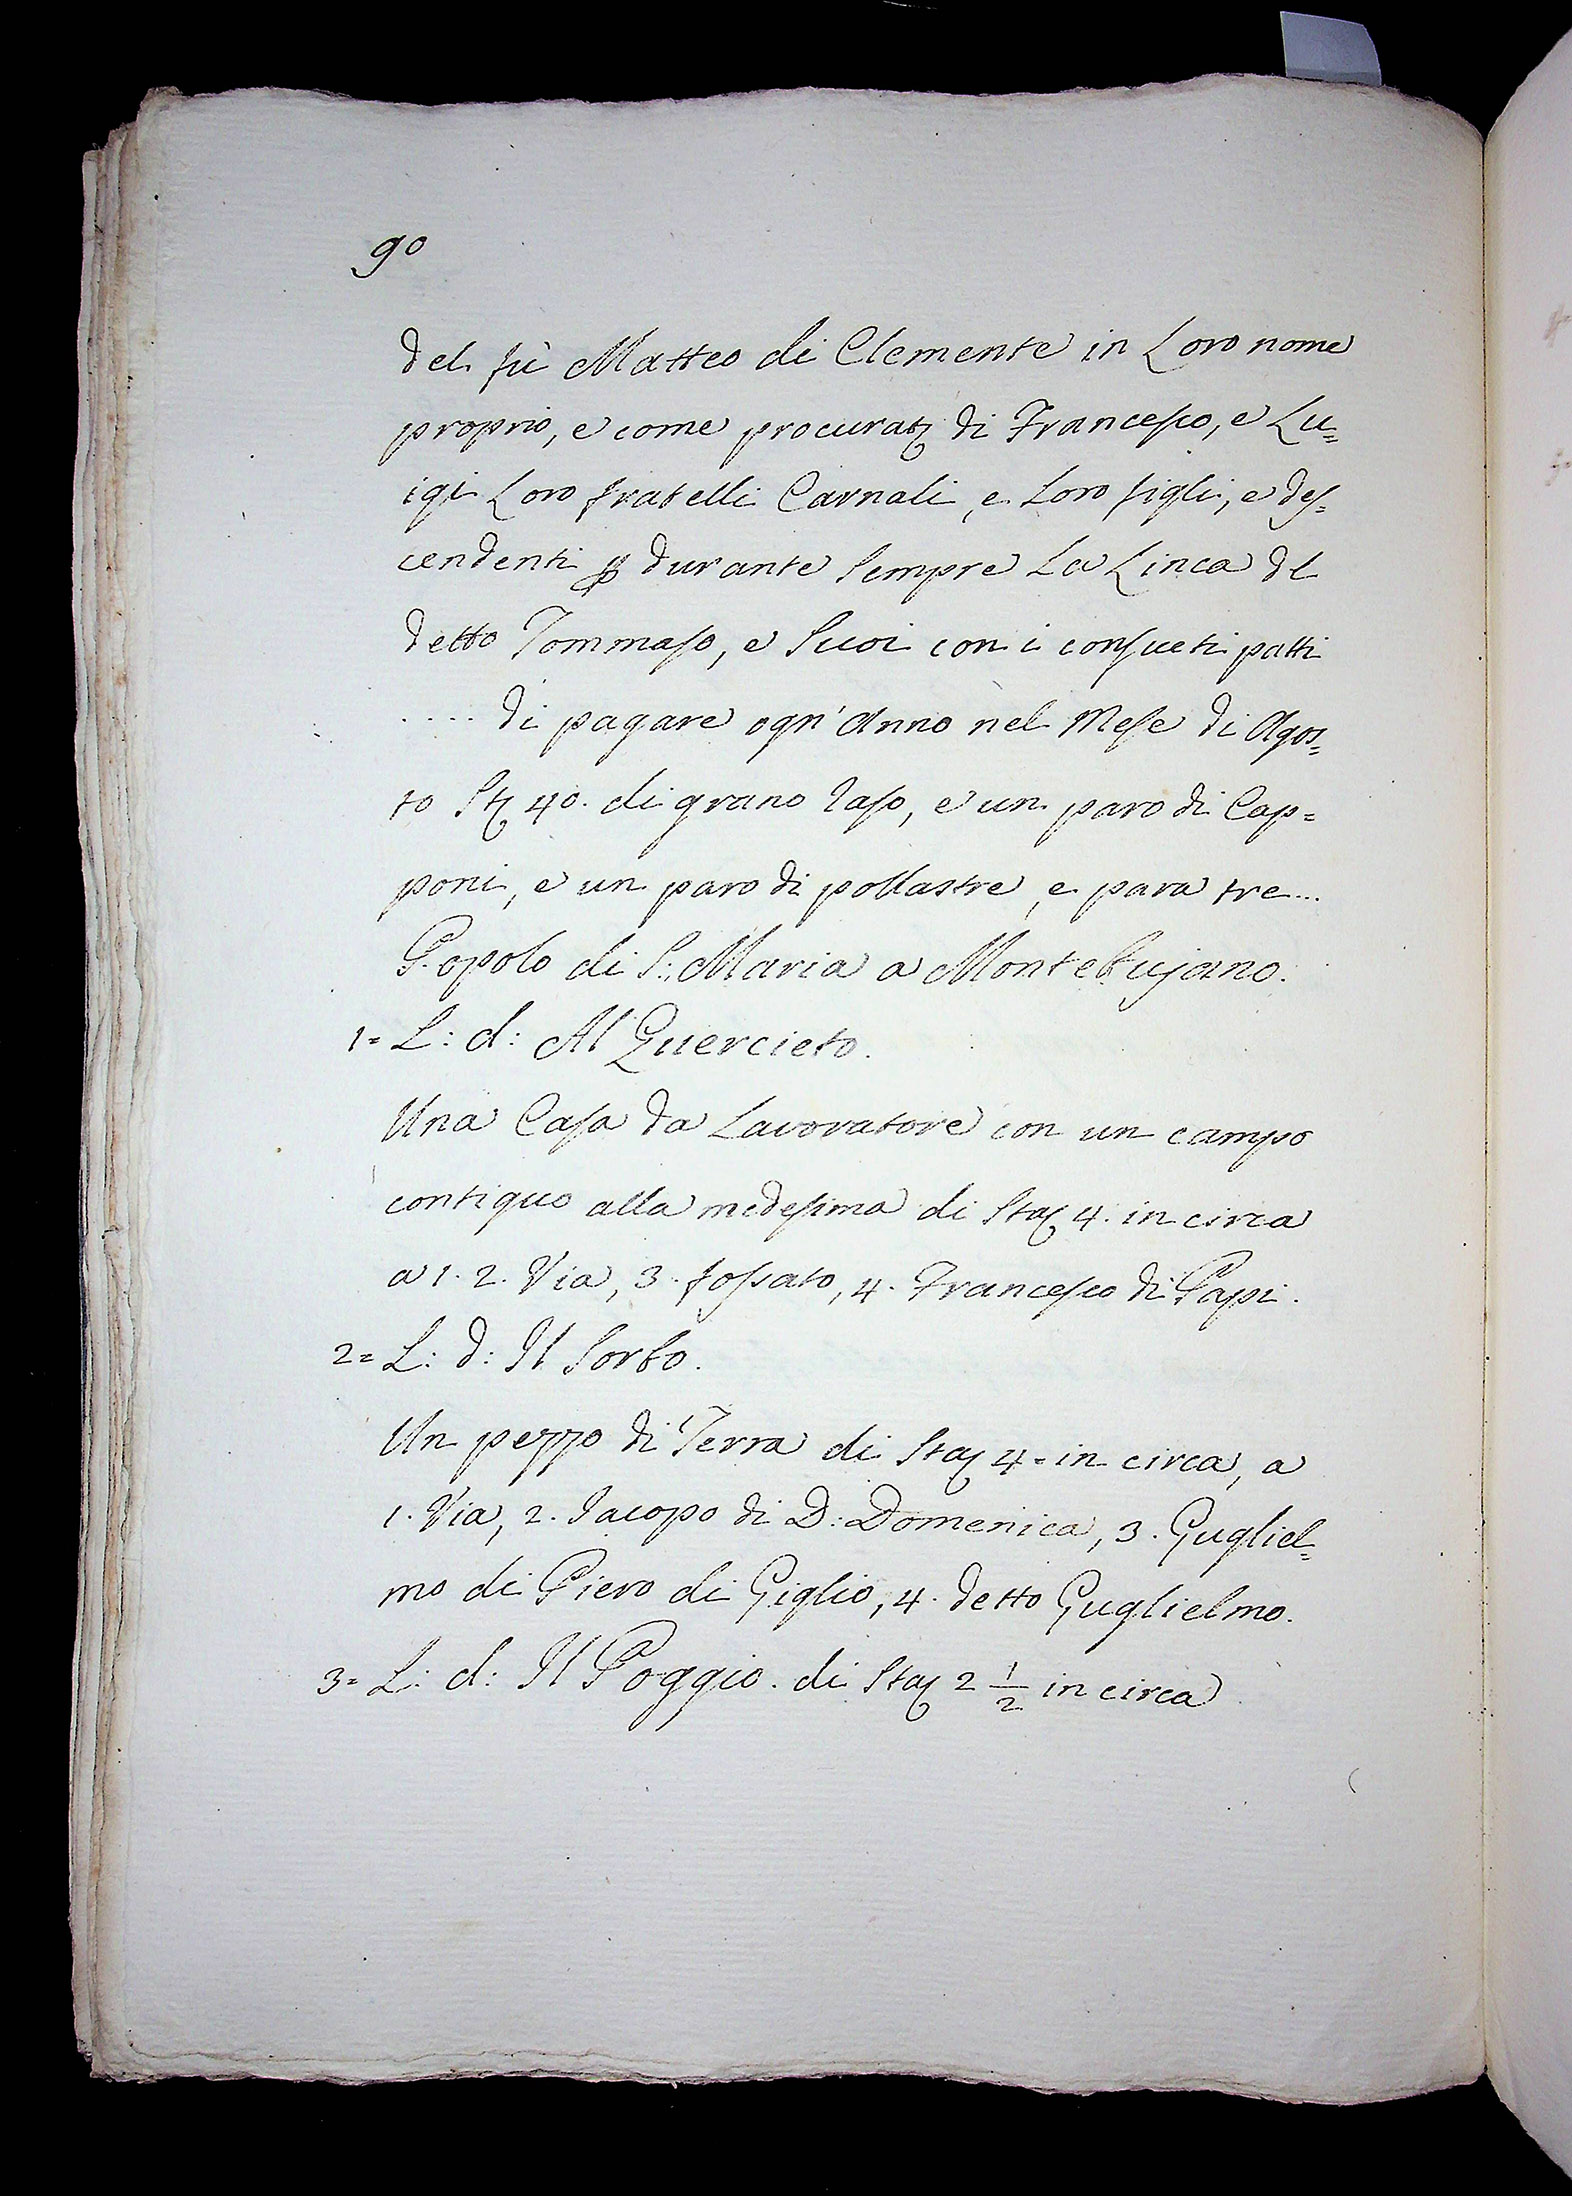 90
del fù Matteo di Clemente in Loro nome
proprio, e come procurat. di Francesco, e Lu=
igi Loro fratelli Carnali, e Loro figli, e des=
cendenti p durante Sempre La Linea del
detto Tommaso, e Suoi con i consueti patti
.... di pagare ogn' Anno nel Mese di Agos=
to St. 40. di grano raso, e un paro di Cap=
poni, e un paro di pollastre, e para tre...
Popolo di S. Maria a Montebujano.
1= L: d: Al Quercieto.
Una Casa da Lavoratore con un campo
contiguo alla medesima di Sta. 4. in circa
a 1. 2. Via, 3. fossato, 4. Francesco di Papi.
2= L: d: Il Sorbo.
Un pezzo di Terra di Sta. 4= in circa, a
1. Via, 2. Iacopo di D: Domenica, 3. Gugliel=
mo di Piero di Giglio, 4. detto Guglielmo.
3= L: d: Il Poggio. di Sta. 2 1/2 in circa